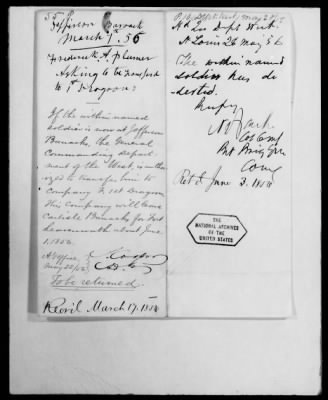 Jefferson Barrack
March 9. 56
Frederick A. Plumer
Asking to be transferd
to 1st Dragoons
If the within named
soldier is now at Jefferson
Barracks, the General
Commanding Depart-
ment of the West, is auth-
orized to transfer him to
company 1st Dragoons
This company will leave
Carlisle Barracks for Fort
Leavenworth about June
1, 1856.
A. G. Office
May 22/56
S. Cooper
A. G.
To be returned
Recvd. March 17. 1856
Hd Qrs Dept West
St Louis 26 May 56
The within named
soldier has de-
serted.
Comg
Ret'd June 3. 1856
THE
NATIONAL ARCHIVES
OF THE
UNITED STATES